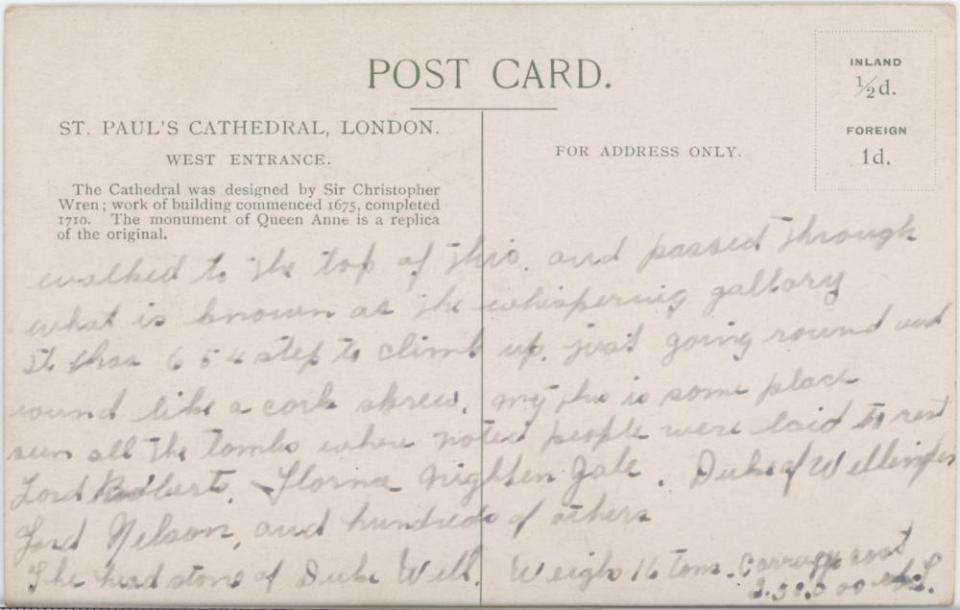 POST CARD.
INLAND
½d.
FOREIGN
1d.
ST. PAUL'S CATHEDRAL, LONDON.
WEST ENTRANCE.
FOR ADDRESS ONLY.
The Cathedral was designed by Sir Christopher
Wren; work of building commenced 1675, completed
1710. The monument of Queen Anne is a replica
of the original.
walked to the top of this. and passed through
what is known as the whispering gallary
It has 6 5 4 step to climb up. just going round and
round like a cork skrew. my this is some place
seen all the tombs where noted people were laid to rest
Lord Florna nighten gale. Duke of Wellington
Lord Nelson, and hundreds of others
The head stone of Duke Well. Weighs 16 tons. carrage cost